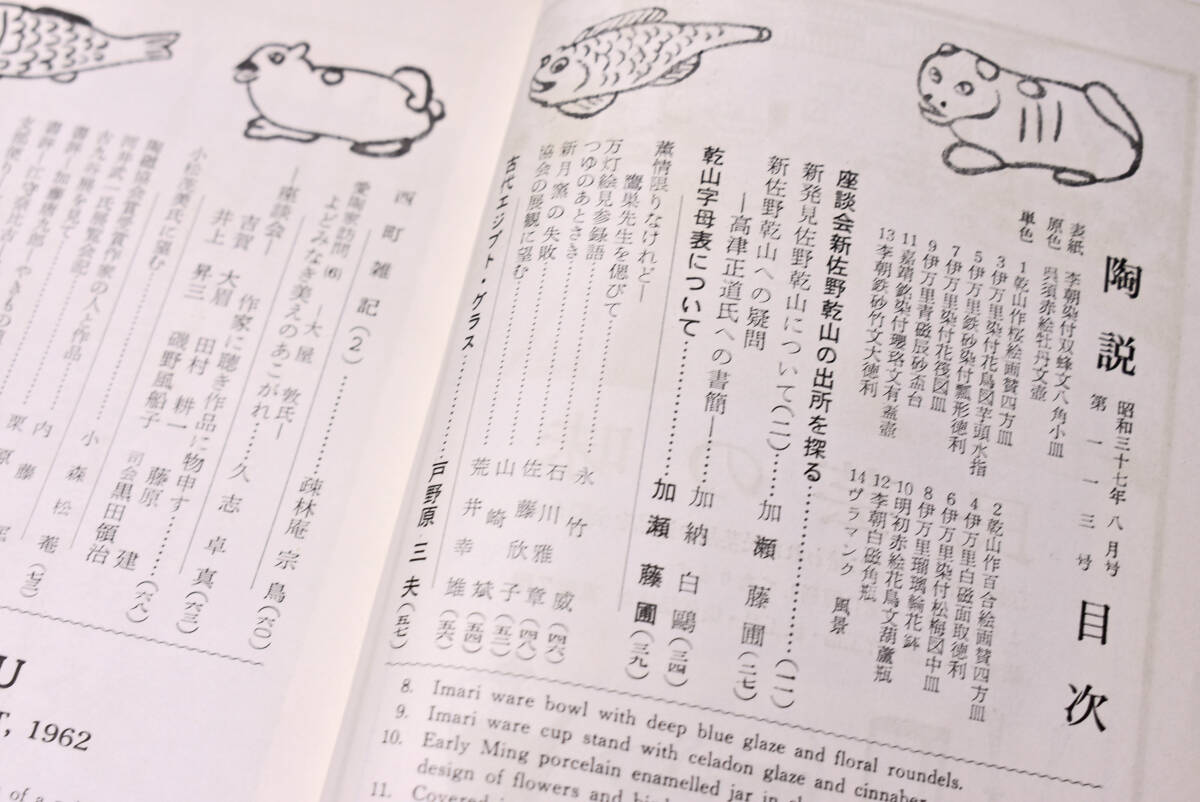 陶説 昭和三十七年 八月号 第一一三号 目次
表紙 李朝染付双蜂文八角小皿
原色 呉須赤絵牡丹文壺
単色 1 乾山作桜絵画賛四方皿
2 乾山作百合絵画賛四方皿
3 伊万里染付花鳥図芋頭水指
4 伊万里白磁面取徳利
5 伊万里鉄砂染付瓢形徳利
6 伊万里染付松梅図中皿
7 伊万里染付花筏図皿
8 伊万里瑠璃輪花鉢
9 伊万里青磁辰砂盃台
10 明初赤絵花鳥文葫蘆瓶
11 嘉靖鈔染付瓔珞文有蓋壺
12 李朝白磁角瓶
13 李朝鉄砂竹文大徳利
14 ヴラマンク 風景
座談会新佐野乾山の出所を探る……(一一)
新発見佐野乾山について(二)……加瀬藤圃(二七)
新佐野乾山への疑問
―高津正道氏への書簡―加納白鷗(三四)
乾山字母表について……加瀬藤圃(三九)
薫情限りなけれど―
鷹巣先生を偲びて……永竹威(四六)
万灯絵見参録語……石川雅章(四八)
つゆのあとさき……佐藤欣子(五二)
新月窯の失敗……山崎斌(五四)
協会の展観に望む……荒井幸雄(五六)
古代エジプト・グラス……戸野原三夫(五七)
西町雑記(2)……疎林庵宗鳥(六〇)
愛陶家訪問(6)
よどみなき美えのあこがれ……久志卓真(六三)
―大屋敦氏―
―座談会―
作家に聴き作品に物申す……(六八)
吉賀大眉 藤原建
井上昇三 田村耕一 磯野風船子 司会黒田領治
小松茂美氏に望む
陶磁協会賞受賞作家の人と作品……小森松菴
河井武一氏展覧会記……内藤
古九谷展を見て
書評―加藤唐九郎
書評―江守奈比古―やきもの
栗原
(七三)
U
, 1962
8. Imari ware bowl with deep blue glaze and floral roundels.
9. Imari ware cup stand with celadon glaze and cinnaber
10. Early Ming porcelain enamelled jar in the
design of flowers and
11. Covered